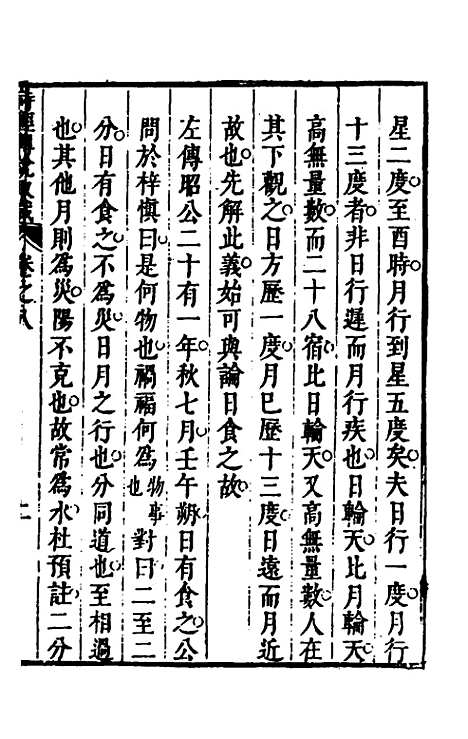 星二度至酉時月行到星五度矣夫日行一度月行
十三度者非日行遲而月行疾也日輪天比月輪天
高無量數而二十八宿比日輪天又高無量數人在
其下觀之日方歷一度月已歷十三度日遠而月近
故也先解此義始可與論日食之故
左傳昭公二十有一年秋七月壬午朔日有食之公
問於梓慎曰是何物也禍福何爲物事也對曰二至二
分日有食之不爲災日月之行也分同道也至相過
也其他月則爲災陽不克也故常爲水杜預註二分
卷之八